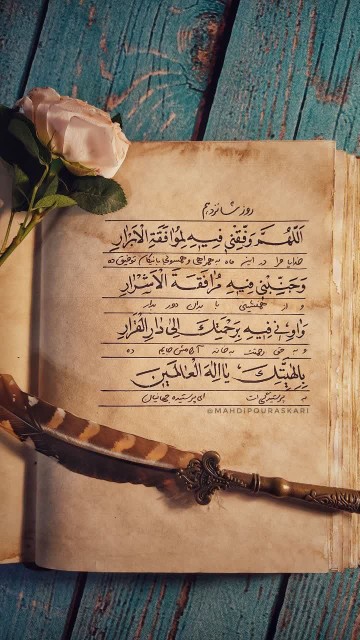 روز شانزدهم
اَللّهُمَّ وَفِّقْنی فیهِ لِمُوافَقَةِ الْاَبْرارِ
خدایا مرا در این ماه به همراهی و همسویی با نیکان توفیق ده
وَجَنِّبْنی فیهِ مُرافَقَةَ الْاَشْرارِ
و از همنشینی با بدان دور بدار
وَاوِنی فیهِ بِرَحْمَتِکَ اِلی دارِ الْقَرارِ
و به حق رحمتت به خانه آرامش جایم ده
بِاِلهِیَّتِکَ یا اِلهَ الْعالَمینَ
به پرستیدگی ات ای پرستیده جهانیان
@MAHDIPOURASKARI